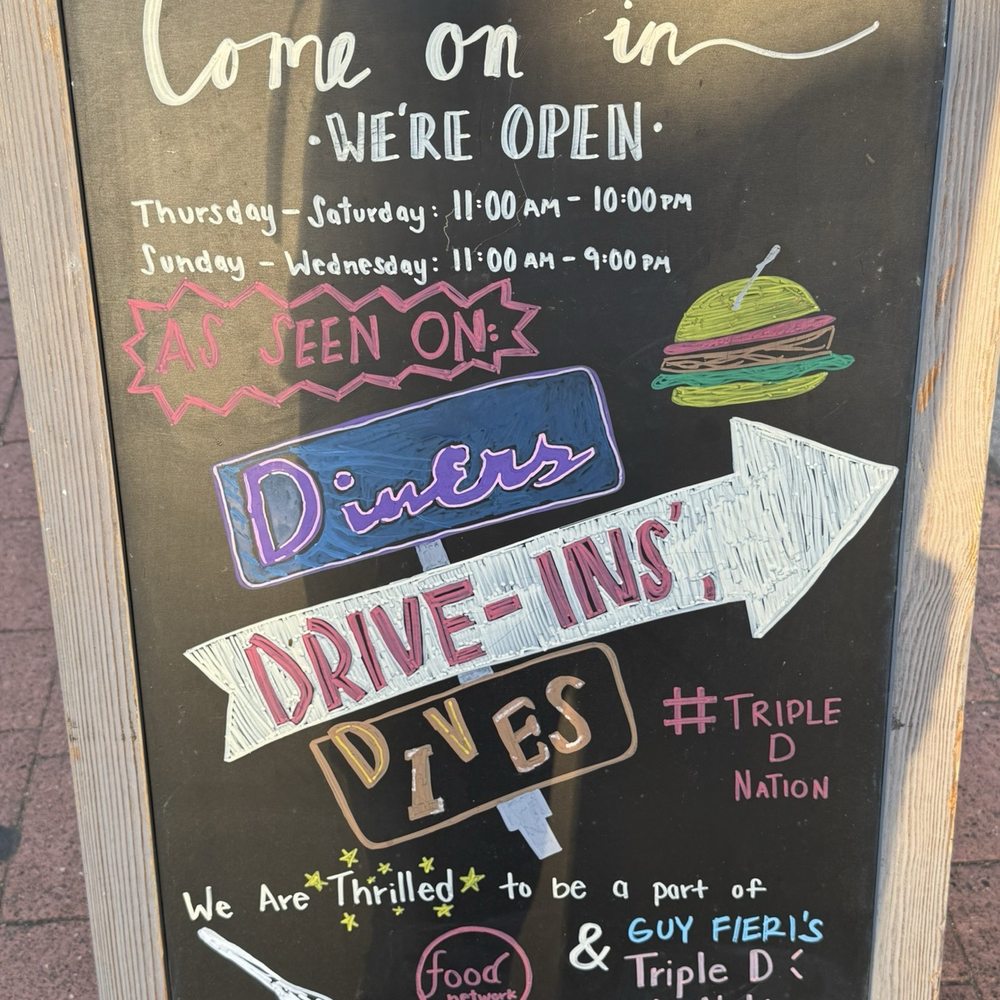 Come on in
·WE'RE OPEN·
Thursday - Saturday: 11:00 AM - 10:00 PM
Sunday - Wednesday: 11:00 AM - 9:00 PM
AS SEEN ON:
Diners
DRIVE-INS',
DIVES
#TRIPLE
D
NATION
We Are Thrilled to be a part of
food
network
& GUY FIERI'S
Triple D